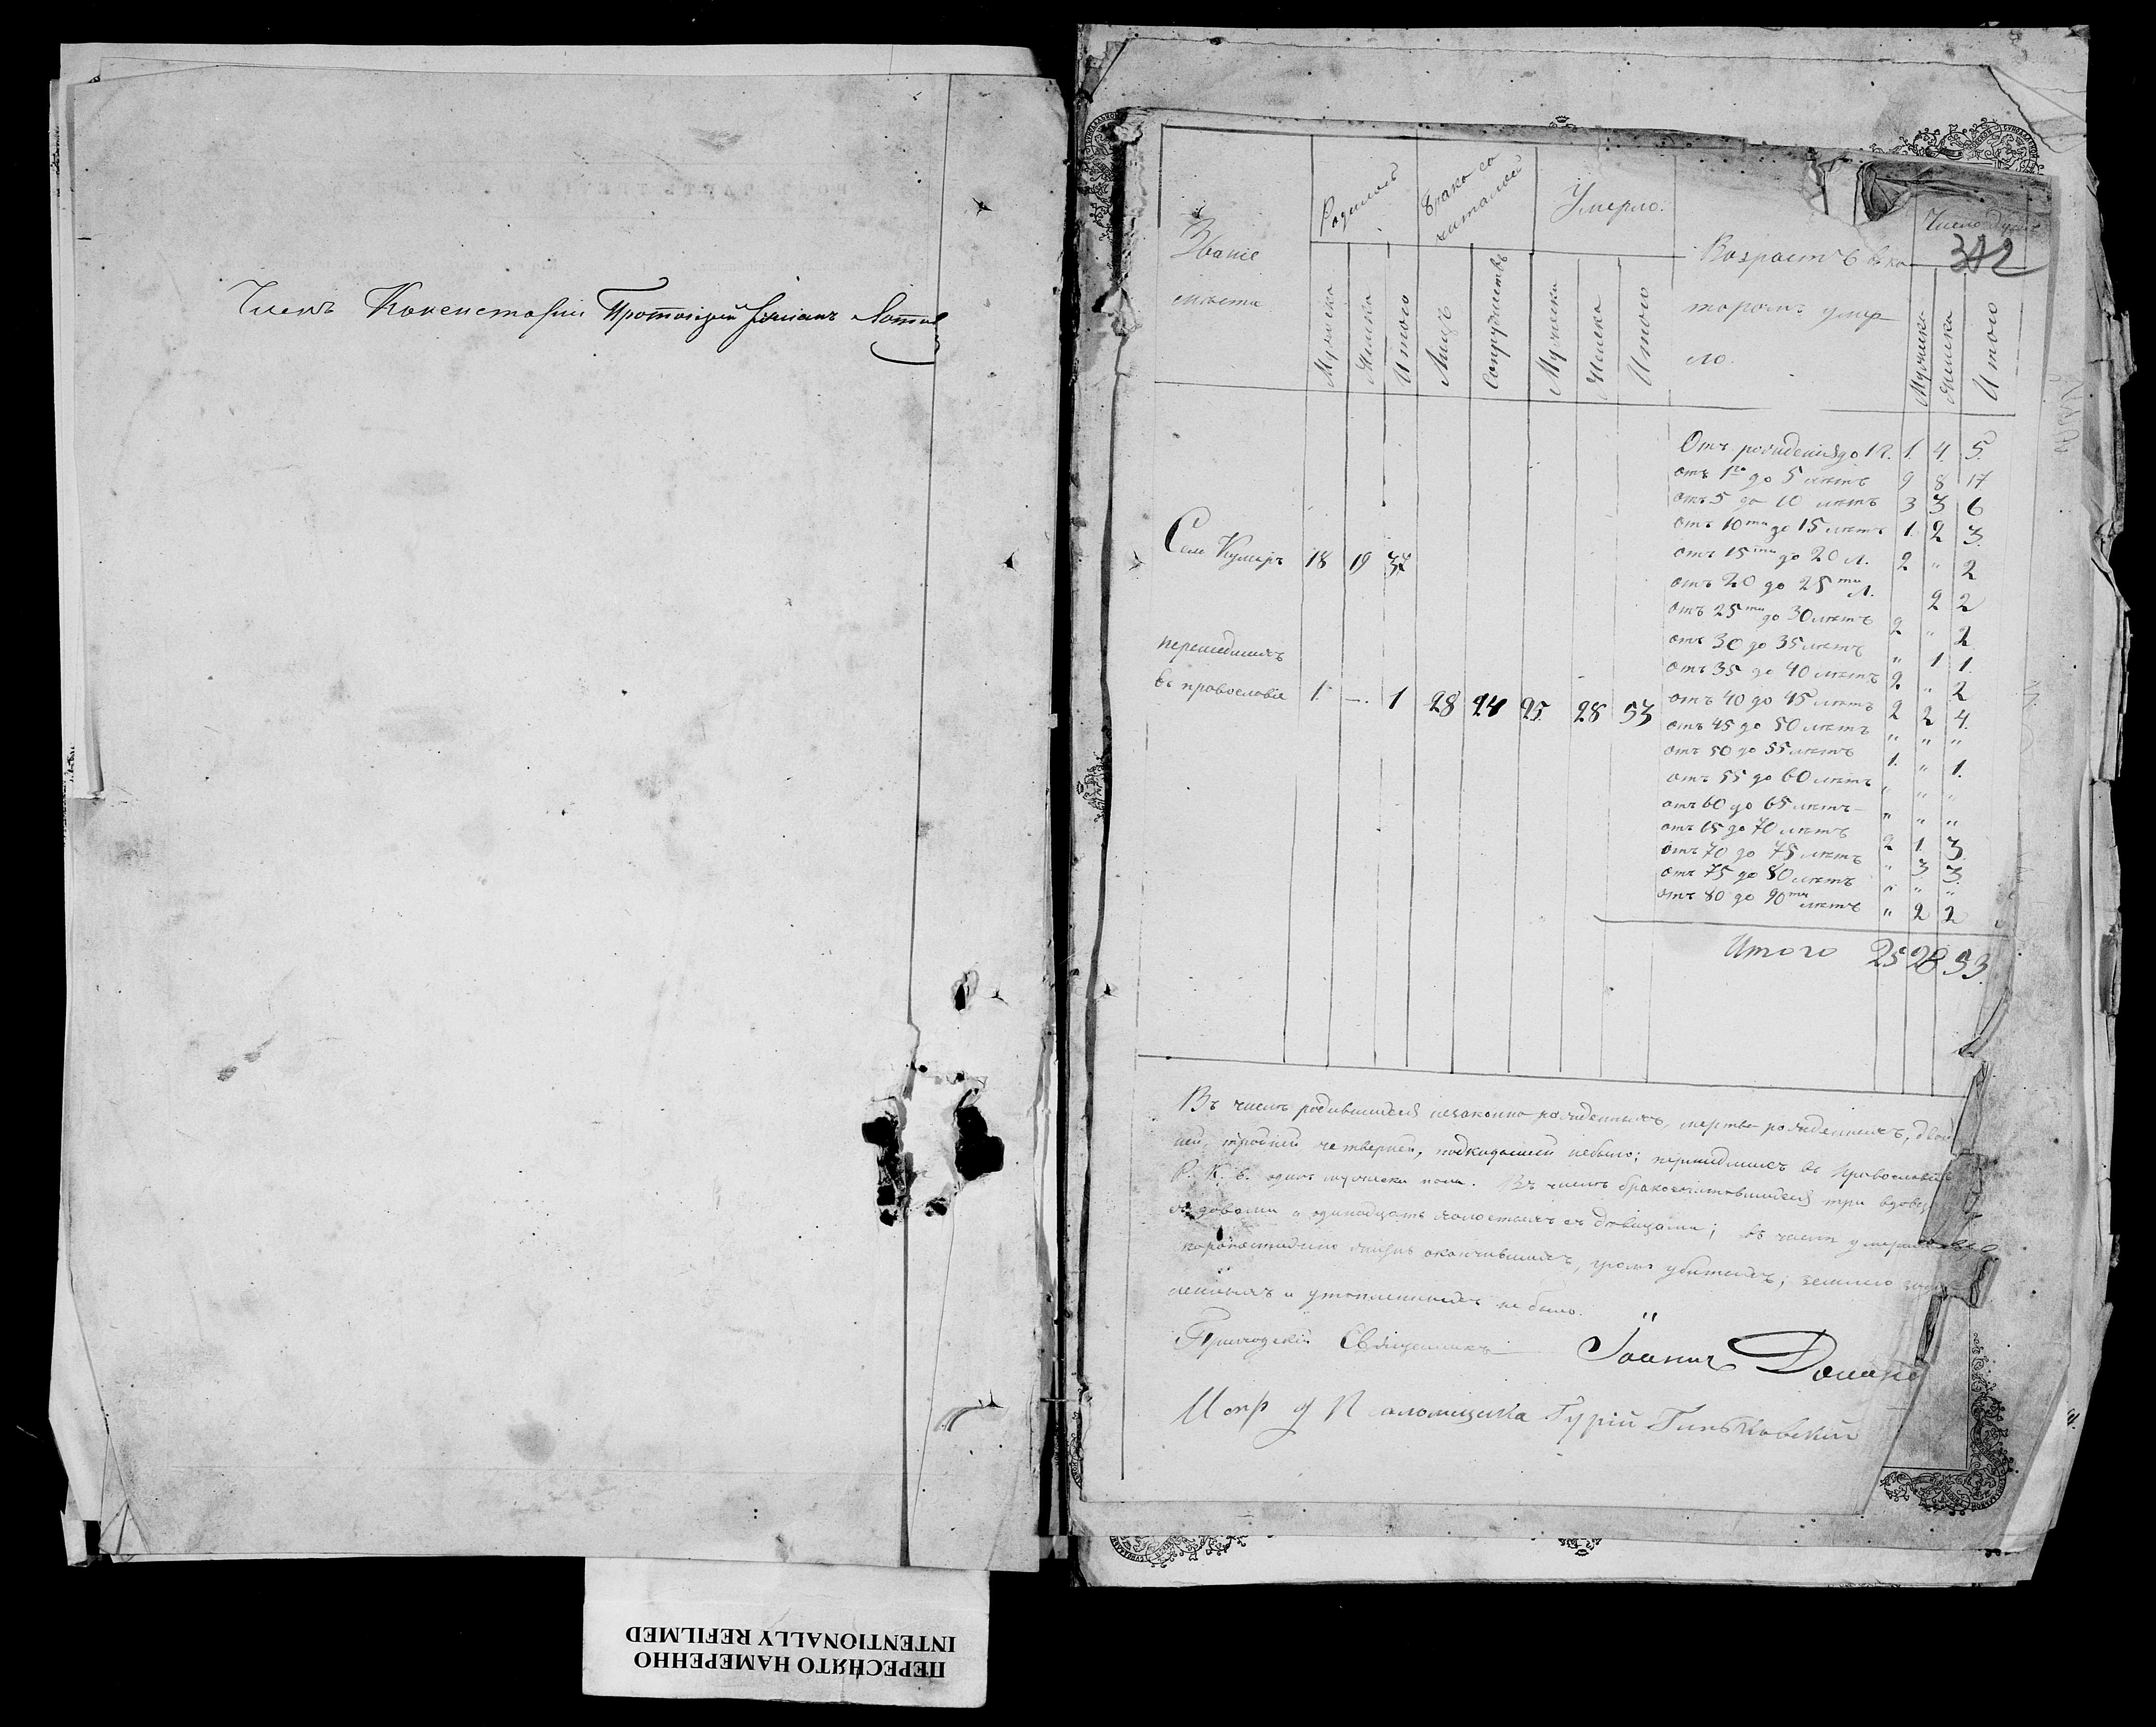 Членъ Консисторіи Протоіерей
382
Званіе
мѣста
Родилось
Брако со
читалось
Умерло.
Возрастъ въ ко
торомъ умер
ло.
Число душъ
Мужеска
Женска
Итого
Лицъ
Супружествъ
Мужеска
Женска
Итого
Мужеска
Женска
Итого
Отъ рожденія до 1 г. 1. 4. 5.
отъ 1го до 5 лѣтъ 9 8 17
отъ 5 до 10 лѣтъ 3 3 6
отъ 10ти до 15 лѣтъ 1. 2 3.
отъ 15ти до 20 л. 2 " 2
отъ 20 до 25ти л. 2 2
отъ 25ти до 30 лѣтъ 2 " 2
отъ 30 до 35 лѣтъ " 1 1.
отъ 35 до 40 лѣтъ 2 " 2
отъ 40 до 45 лѣтъ 2 2 4.
отъ 45 до 50 лѣтъ " " "
отъ 50 до 55 лѣтъ 1. " 1.
отъ 55 до 60 лѣтъ " " "
отъ 60 до 65 лѣтъ " " "
отъ 65 до 70 лѣтъ 2 1. 3.
отъ 70 до 75 лѣтъ " 3 3.
отъ 75 до 80 лѣтъ " " "
отъ 80 до 90ти лѣтъ " 2 2
Село 18 19 37
перешедшихъ
въ православіе 1. —. 1 28 24 25. 28 53
Итого 25 28 53.
Въ числѣ родившихся незаконно рожденныхъ, мертво рожденныхъ, двой
ней, тройней четверней, подкидышей небыло; перешедшихъ въ православіе
Р. К. в. одинъ мужеска пола. Въ числѣ бракосочитавшихся три вдовца
съ вдовами и одинадцать холостыхъ съ дѣвицами; въ числѣ умершихъ
скоропостижно жизнь окончившихъ, громъ убитыхъ; землею
ленныхъ и утопленныхъ не было.
Приходскій Священникъ Іоаннъ
И спр д Псаломщика Гурій
ПЕРЕСНЯТО НАМЕРЕННО
INTENTIONALLY REFILMED